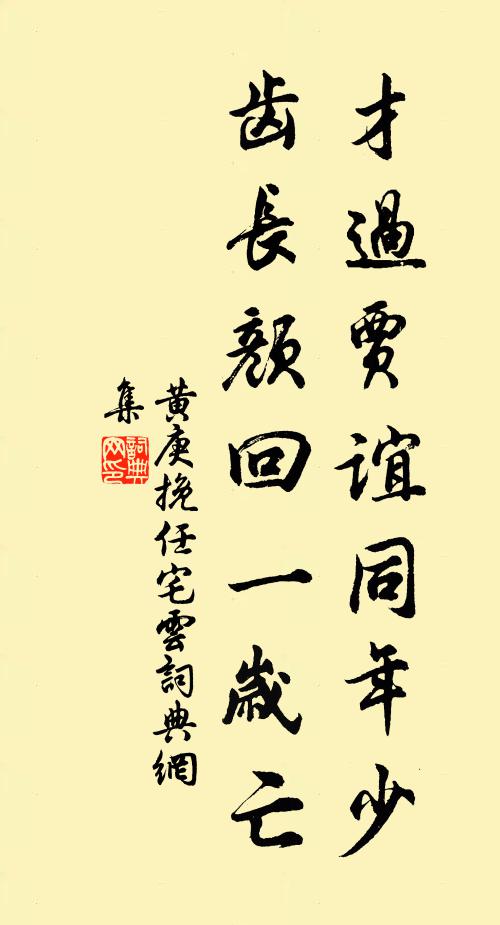 才過賈誼同年少
齿長顏回一歲亡
黄庚挽任宅雲詞典網
集
詞典
网印